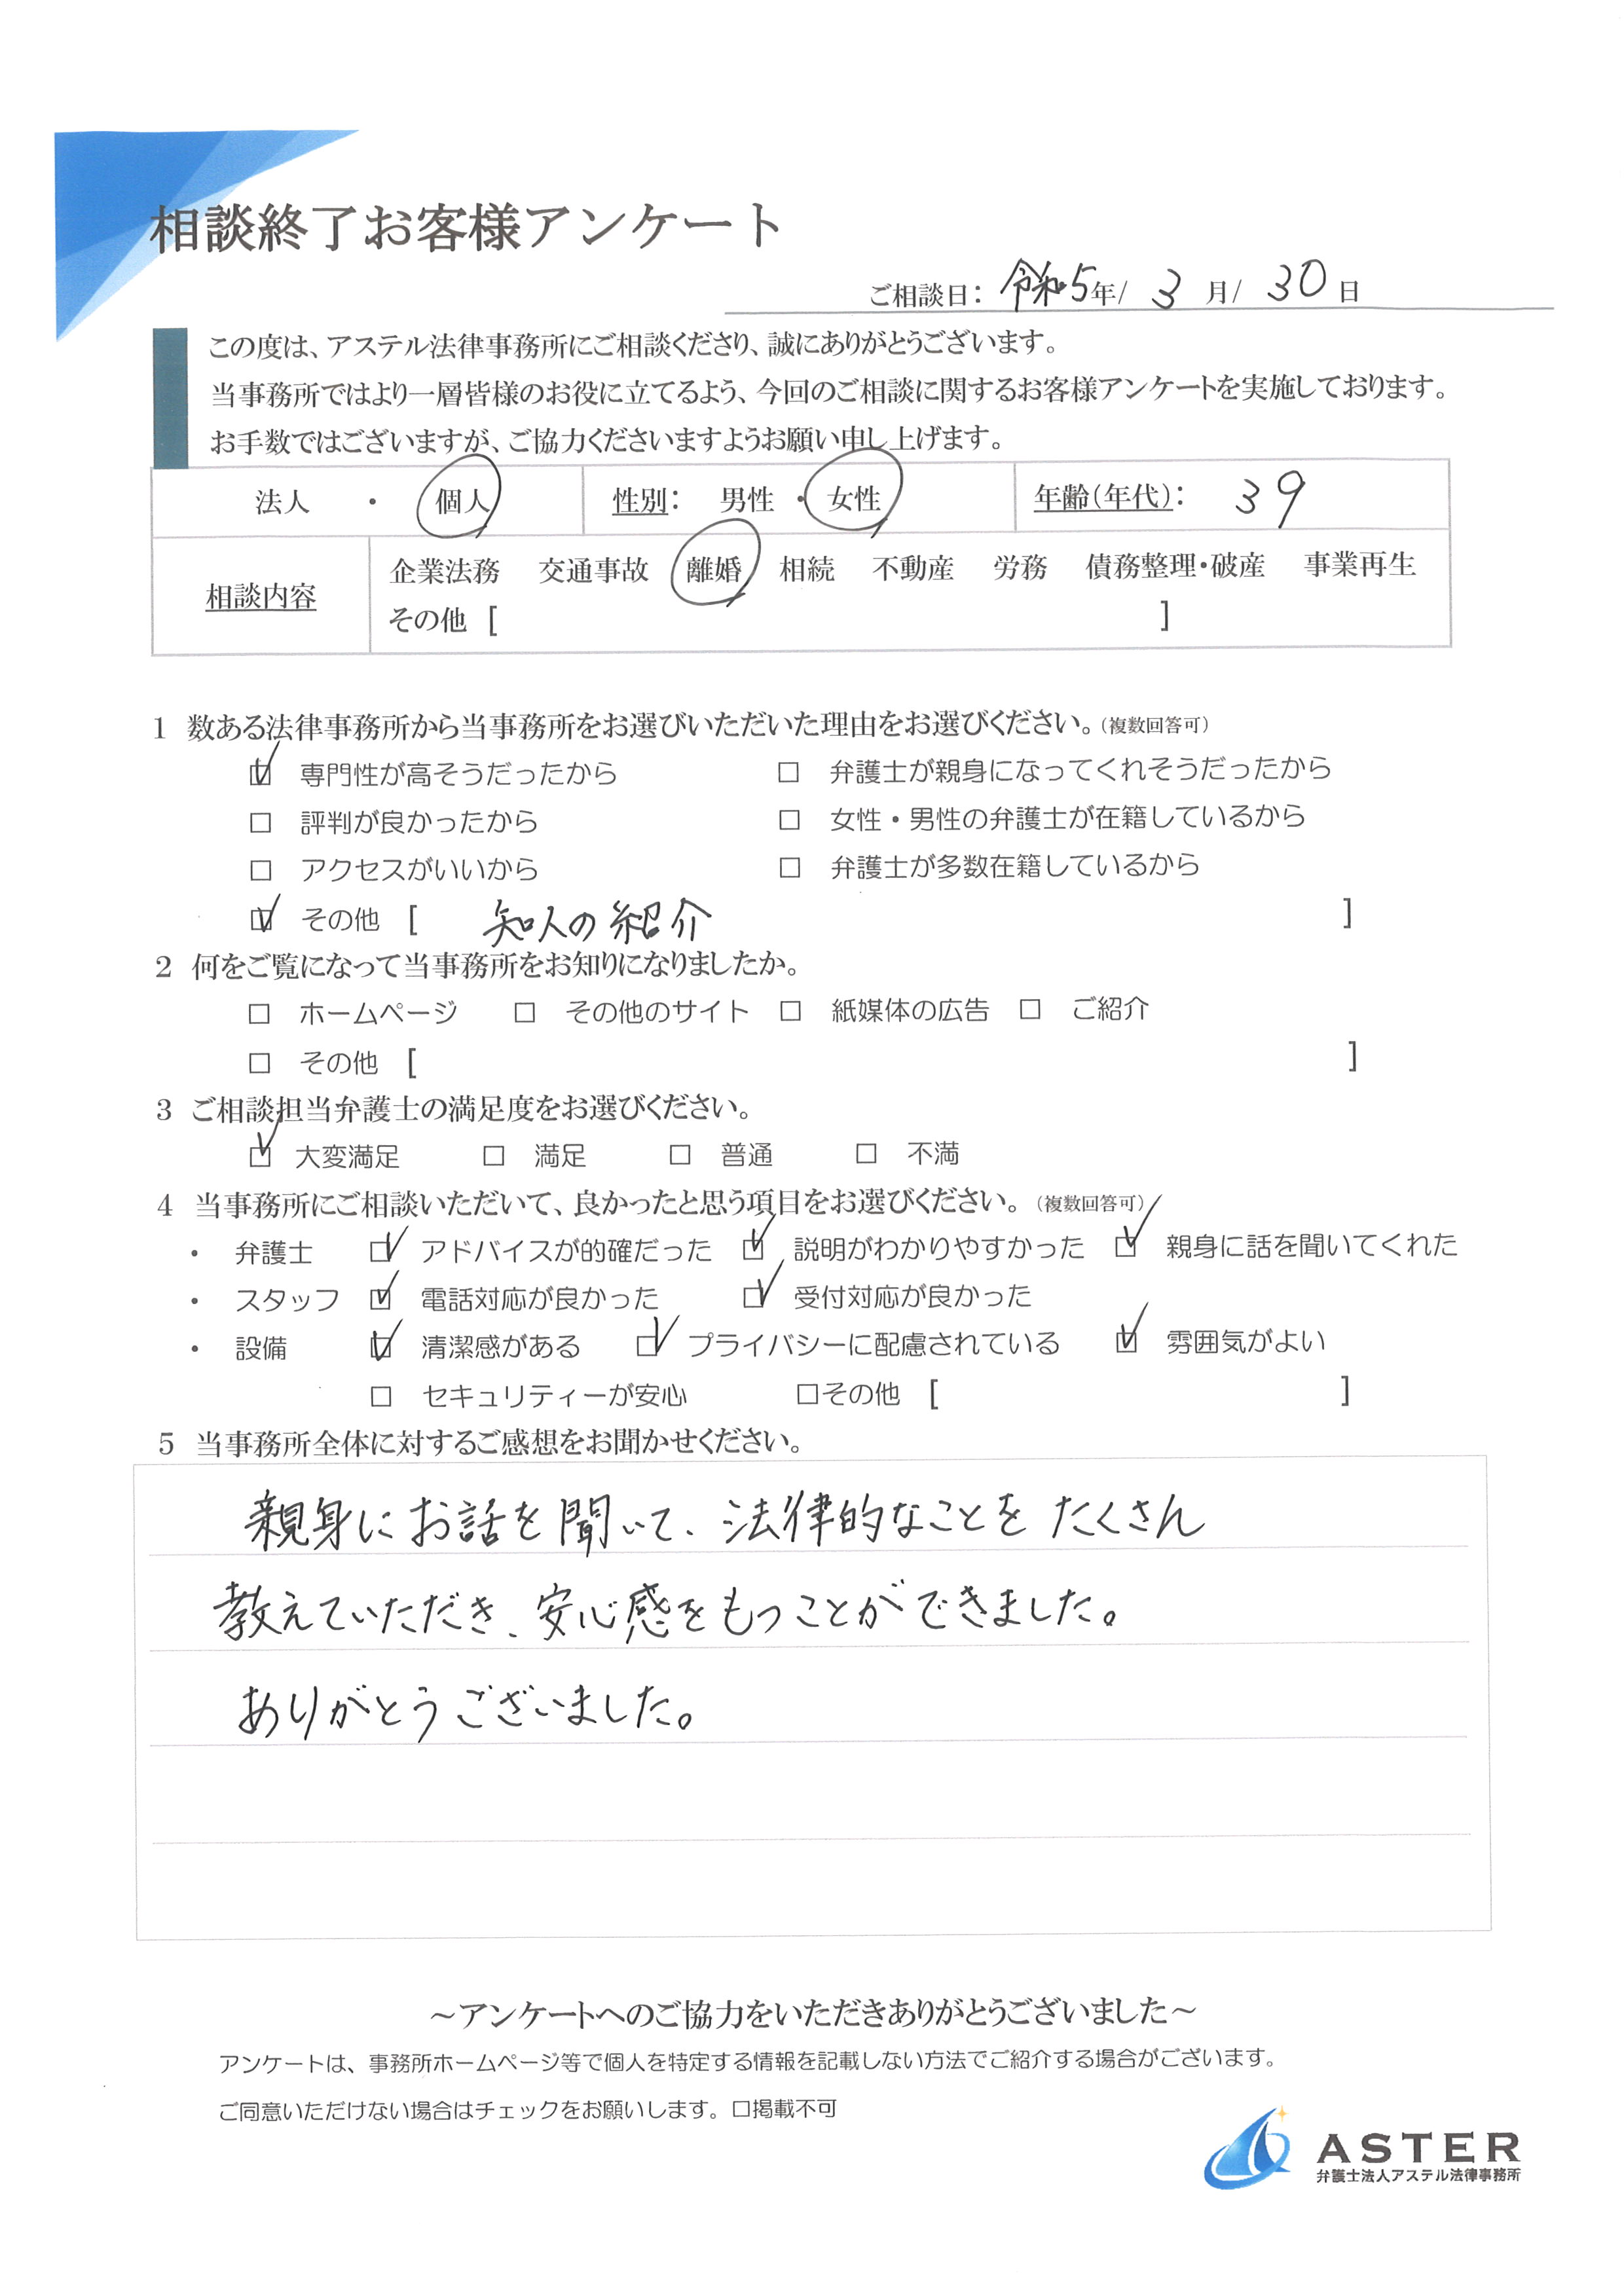 相談終了お客様アンケート
ご相談日： 令和5年/ 3 月/ 30 日
この度は、アステル法律事務所にご相談くださり、誠にありがとうございます。
当事務所ではより一層皆様のお役に立てるよう、今回のご相談に関するお客様アンケートを実施しております。
お手数ではございますが、ご協力くださいますようお願い申し上げます。
法人 ・ 個人 性別： 男性 ・ 女性 年齢（年代）： 39
相談内容 企業法務 交通事故 離婚 相続 不動産 労務 債務整理・破産 事業再生
その他 [ ]
1 数ある法律事務所から当事務所をお選びいただいた理由をお選びください。（複数回答可）
☑ 専門性が高そうだったから □ 弁護士が親身になってくれそうだったから
□ 評判が良かったから □ 女性・男性の弁護士が在籍しているから
□ アクセスがいいから □ 弁護士が多数在籍しているから
☑ その他 [ 知人の紹介 ]
2 何をご覧になって当事務所をお知りになりましたか。
□ ホームページ □ その他のサイト □ 紙媒体の広告 □ ご紹介
□ その他 [ ]
3 ご相談担当弁護士の満足度をお選びください。
☑ 大変満足 □ 満足 □ 普通 □ 不満
4 当事務所にご相談いただいて、良かったと思う項目をお選びください。（複数回答可）
・ 弁護士 ☑ アドバイスが的確だった ☑ 説明がわかりやすかった ☑ 親身に話を聞いてくれた
・ スタッフ ☑ 電話対応が良かった ☑ 受付対応が良かった
・ 設備 ☑ 清潔感がある ☑ プライバシーに配慮されている ☑ 雰囲気がよい
□ セキュリティーが安心 □その他 [ ]
5 当事務所全体に対するご感想をお聞かせください。
親身にお話を聞いて、法律的なことをたくさん
教えていただき、安心感をもつことができました。
ありがとうございました。
～アンケートへのご協力をいただきありがとうございました～
アンケートは、事務所ホームページ等で個人を特定する情報を記載しない方法でご紹介する場合がございます。
ご同意いただけない場合はチェックをお願いします。□掲載不可
ASTER
弁護士法人アステル法律事務所